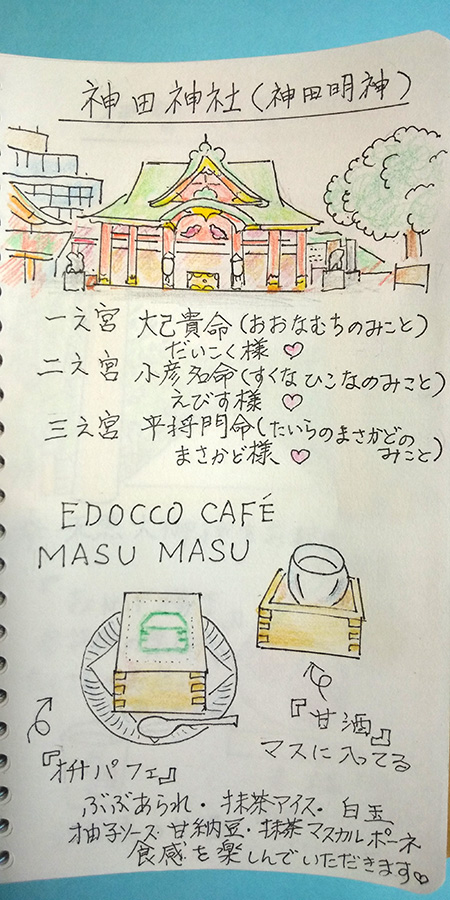 神田神社(神田明神)
一之宮 大己貴命(おおなむちのみこと)
だいこく様
二之宮 小彦名命(すくなひこなのみこと)
えびす様
三之宮 平将門命(たいらのまさかどの
まさかど様 みこと)
EDOCCO CAFÉ
MASU MASU
『甘酒』
マスに入ってる
『枡パフェ』
ぶぶあられ・抹茶アイス・白玉
柚子ソーズ 甘納豆・抹茶マスカルポーネ
食感を楽しんでいただきます